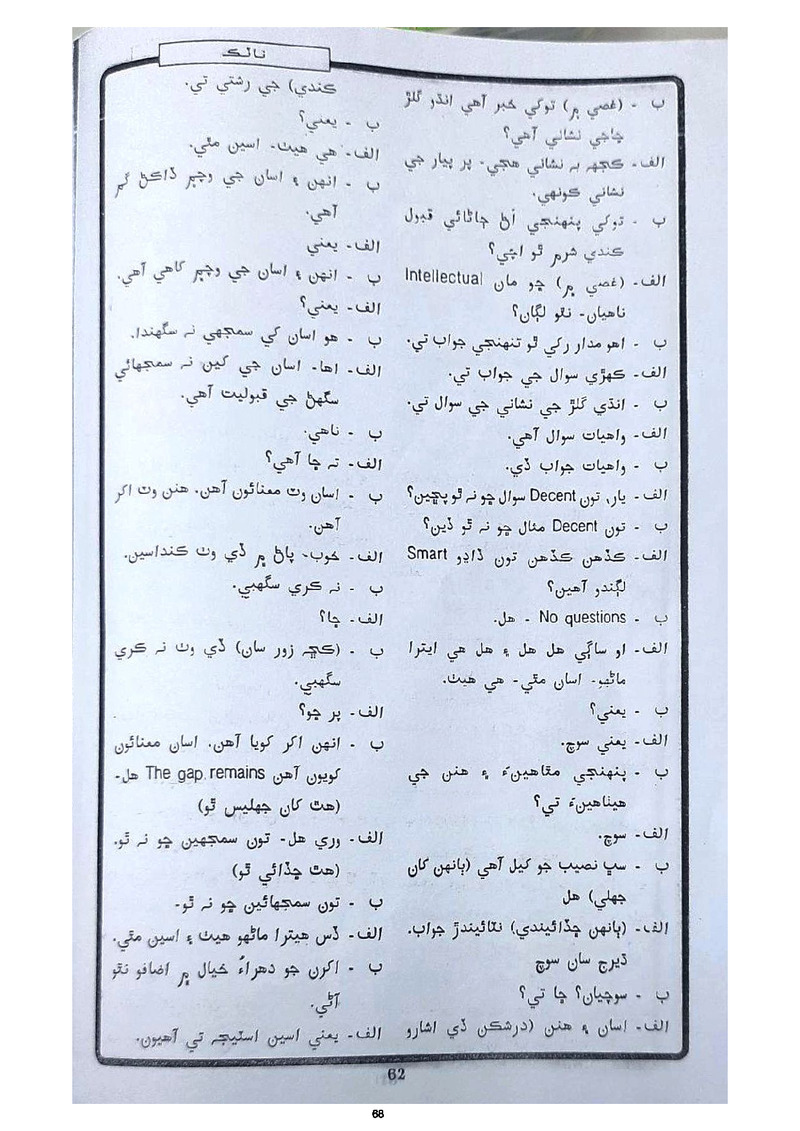 ناٽڪ
ب - (غصي ۾) توکي خبر آهي انڌو گلڙ
ڇاجي نشاني آهي؟
الف- ڪجهه به نشاني هجي- پر پيار جي
نشاني ڪونهي.
ب - توکي پنهنجي اڻ ڄاڻائي قبول
ڪندي شرم ٿو اچي؟
الف- (غصي ۾) ڇو مان Intellectual
ناهيان- نٿو لڳان؟
ب - اهو مدار رکي ٿو تنهنجي جواب تي.
الف- ڪهڙي سوال جي جواب تي.
ب - انڌي گلڙ جي نشاني جي سوال تي.
الف- واهيات سوال آهي.
ب - واهيات جواب ڏي.
الف- يار، تون Decent سوال ڇو نه ٿو پڇين؟
ب - تون Decent مثال ڇو نه ٿو ڏين؟
الف- ڪڏهن ڪڏهن تون ڏاڍو Smart
لڳندو آهين؟
ب - No questions - هل.
الف- او ساڳي هل هل ۽ هل هي ايترا
ماڻهو- اسان مٿي- هي هيٺ.
ب - يعني؟
الف- يعني سوچ.
ب - پنهنجي مٿاهينءَ ۽ هنن جي
هيٺاهينءَ تي؟
الف- سوچ.
ب - سڀ نصيب جو کيل آهي (ٻانهن کان
جهلي) هل
الف- (ٻانهن ڇڏائيندي) نٽائيندڙ جواب.
ڌيرج سان سوچ
ب - سوچيان؟ ڇا تي؟
الف- اسان ۽ هنن (درشڪن ڏي اشارو
ڪندي) جي رشتي تي.
ب - يعني؟
الف- هي هيٺ- اسين مٿي.
ب - انهن ۽ اسان جي وچ۾ ڏاڪڻ گم
آهي.
الف- يعني
ب - انهن ۽ اسان جي وچ۾ کاهي آهي.
الف- يعني؟
ب - هو اسان کي سمجهي نه سگهندا.
الف- اها- اسان جي کين نه سمجهائي
سگهڻ جي قبوليت آهي.
ب - ناهي.
الف- ته ڇا آهي؟
ب - اسان وٽ معنائون آهن. هنن وٽ اکر
آهن.
الف- خوب- پاڻ ۾ ڏي وٺ ڪنداسين.
ب - نه ڪري سگهبي.
الف- ڇا؟
ب - (ڪجهه زور سان) ڏي وٺ نه ڪري
سگهبي.
الف- پر ڇو؟
ب - انهن اکر کويا آهن. اسان معنائون
کويون آهن The gap remains هل-
(هٿ کان جهليس ٿو)
الف- وري هل- تون سمجهين ڇو نه ٿو.
(هٿ ڇڏائي ٿو)
ب - تون سمجهائين ڇو نه ٿو-
الف- ڏس هيترا ماڻهو هيٺ ۽ اسين مٿي.
ب - اکرن جو دهراءُ خيال ۾ اضافو نٿو
آڻي.
الف- يعني اسين اسٽيجه تي آهيون.
62
68